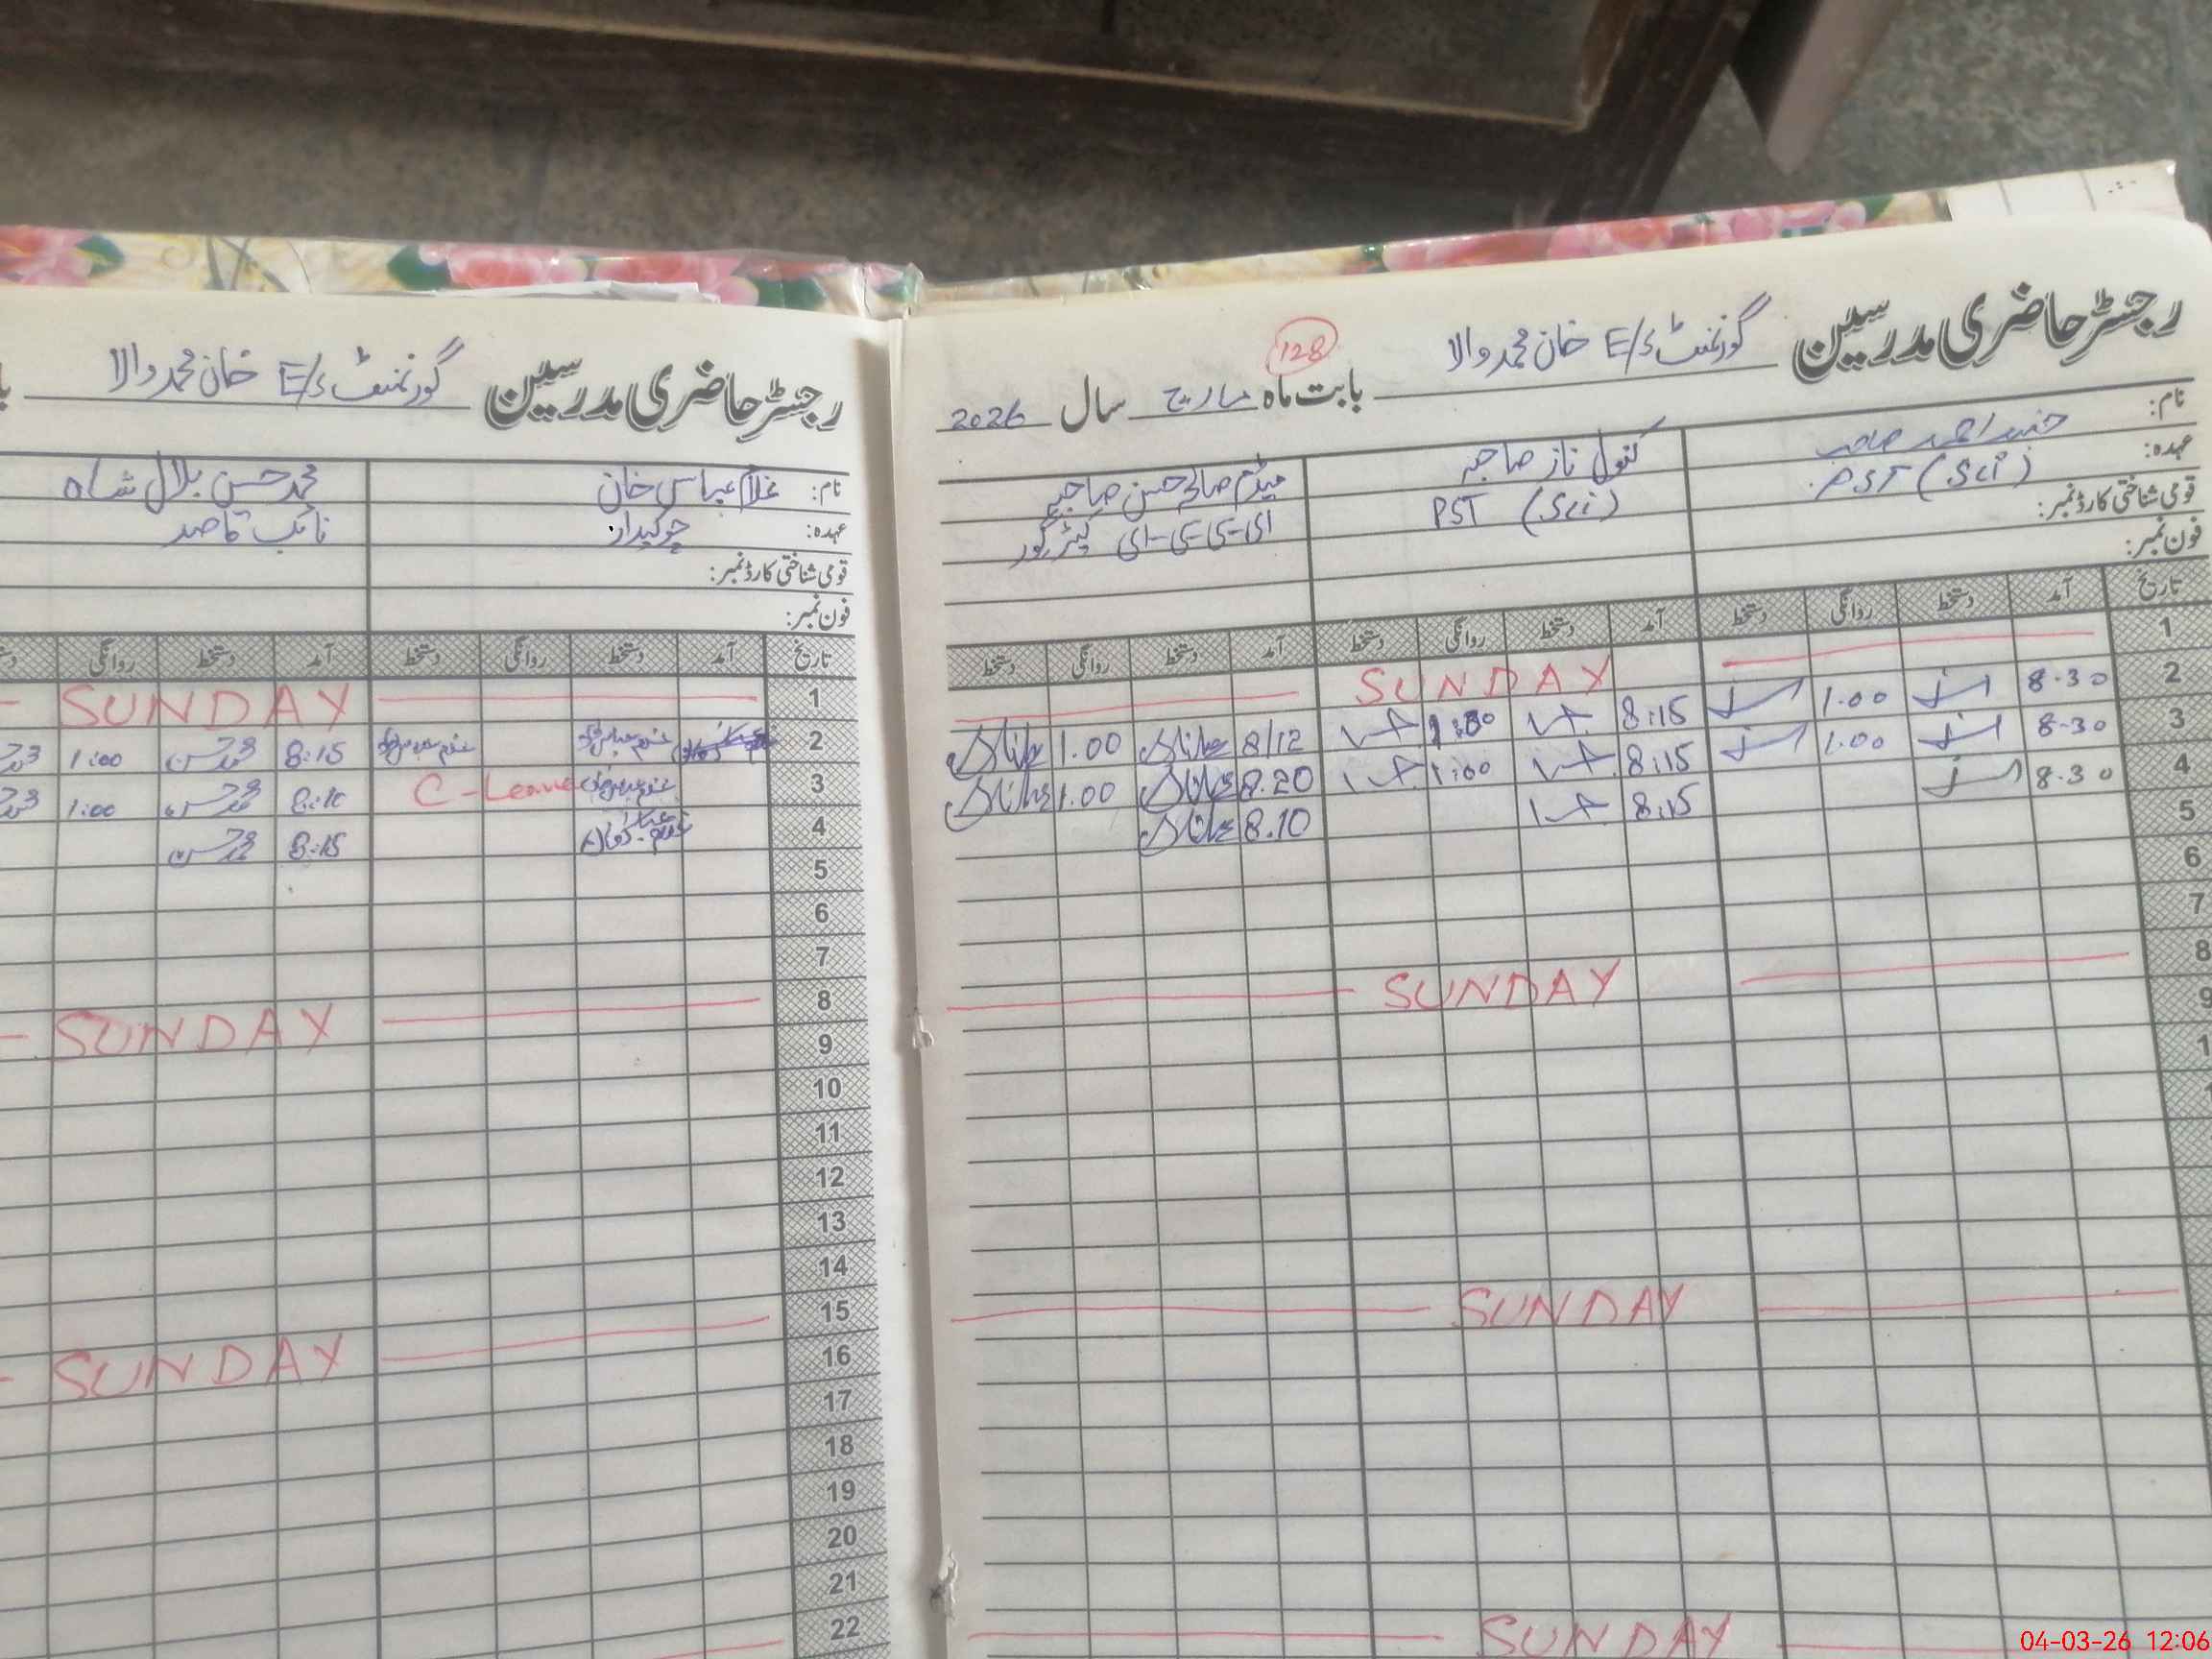 رجسٹر حاضری مدرسین گورنمنٹ E/S خان محمد والا بابت ماہ مارچ سال 2026
128
نام:
کنول ناز صاحبہ
میڈم صالح حسن صاحبہ
عہدہ:
PST (Sci)
PST (Sci)
ای-سی-سی-ای کیئر گور
قومی شناختی کارڈ نمبر:
فون نمبر:
تاریخ آمد دستخط روانگی دستخط آمد دستخط روانگی دستخط آمد دستخط روانگی دستخط
1 SUNDAY
2 8-30 1.00 8:15 1:00 8/12 1.00
3 8-30 1.00 8:15 1:00 8.20 1.00
4 8-30 8:15 8.10
5
6
7
8 SUNDAY
9
SUNDAY
SUNDAY
رجسٹر حاضری مدرسین گورنمنٹ E/S خان محمد والا
نام: غلام عباس خان محمد حسن بلال شاہ
عہدہ: چوکیدار نائب قاصد
قومی شناختی کارڈ نمبر:
فون نمبر:
تاریخ آمد دستخط روانگی دستخط آمد دستخط روانگی
1 SUNDAY
2 8:15 محمد حسن 1:00
3 C-Leave 8:10 محمد حسن 1:00
4 8:15 محمد حسن
5
6
7
8 SUNDAY
9
10
11
12
13
14
15
16 SUNDAY
17
18
19
20
21
22
04-03-26 12:06